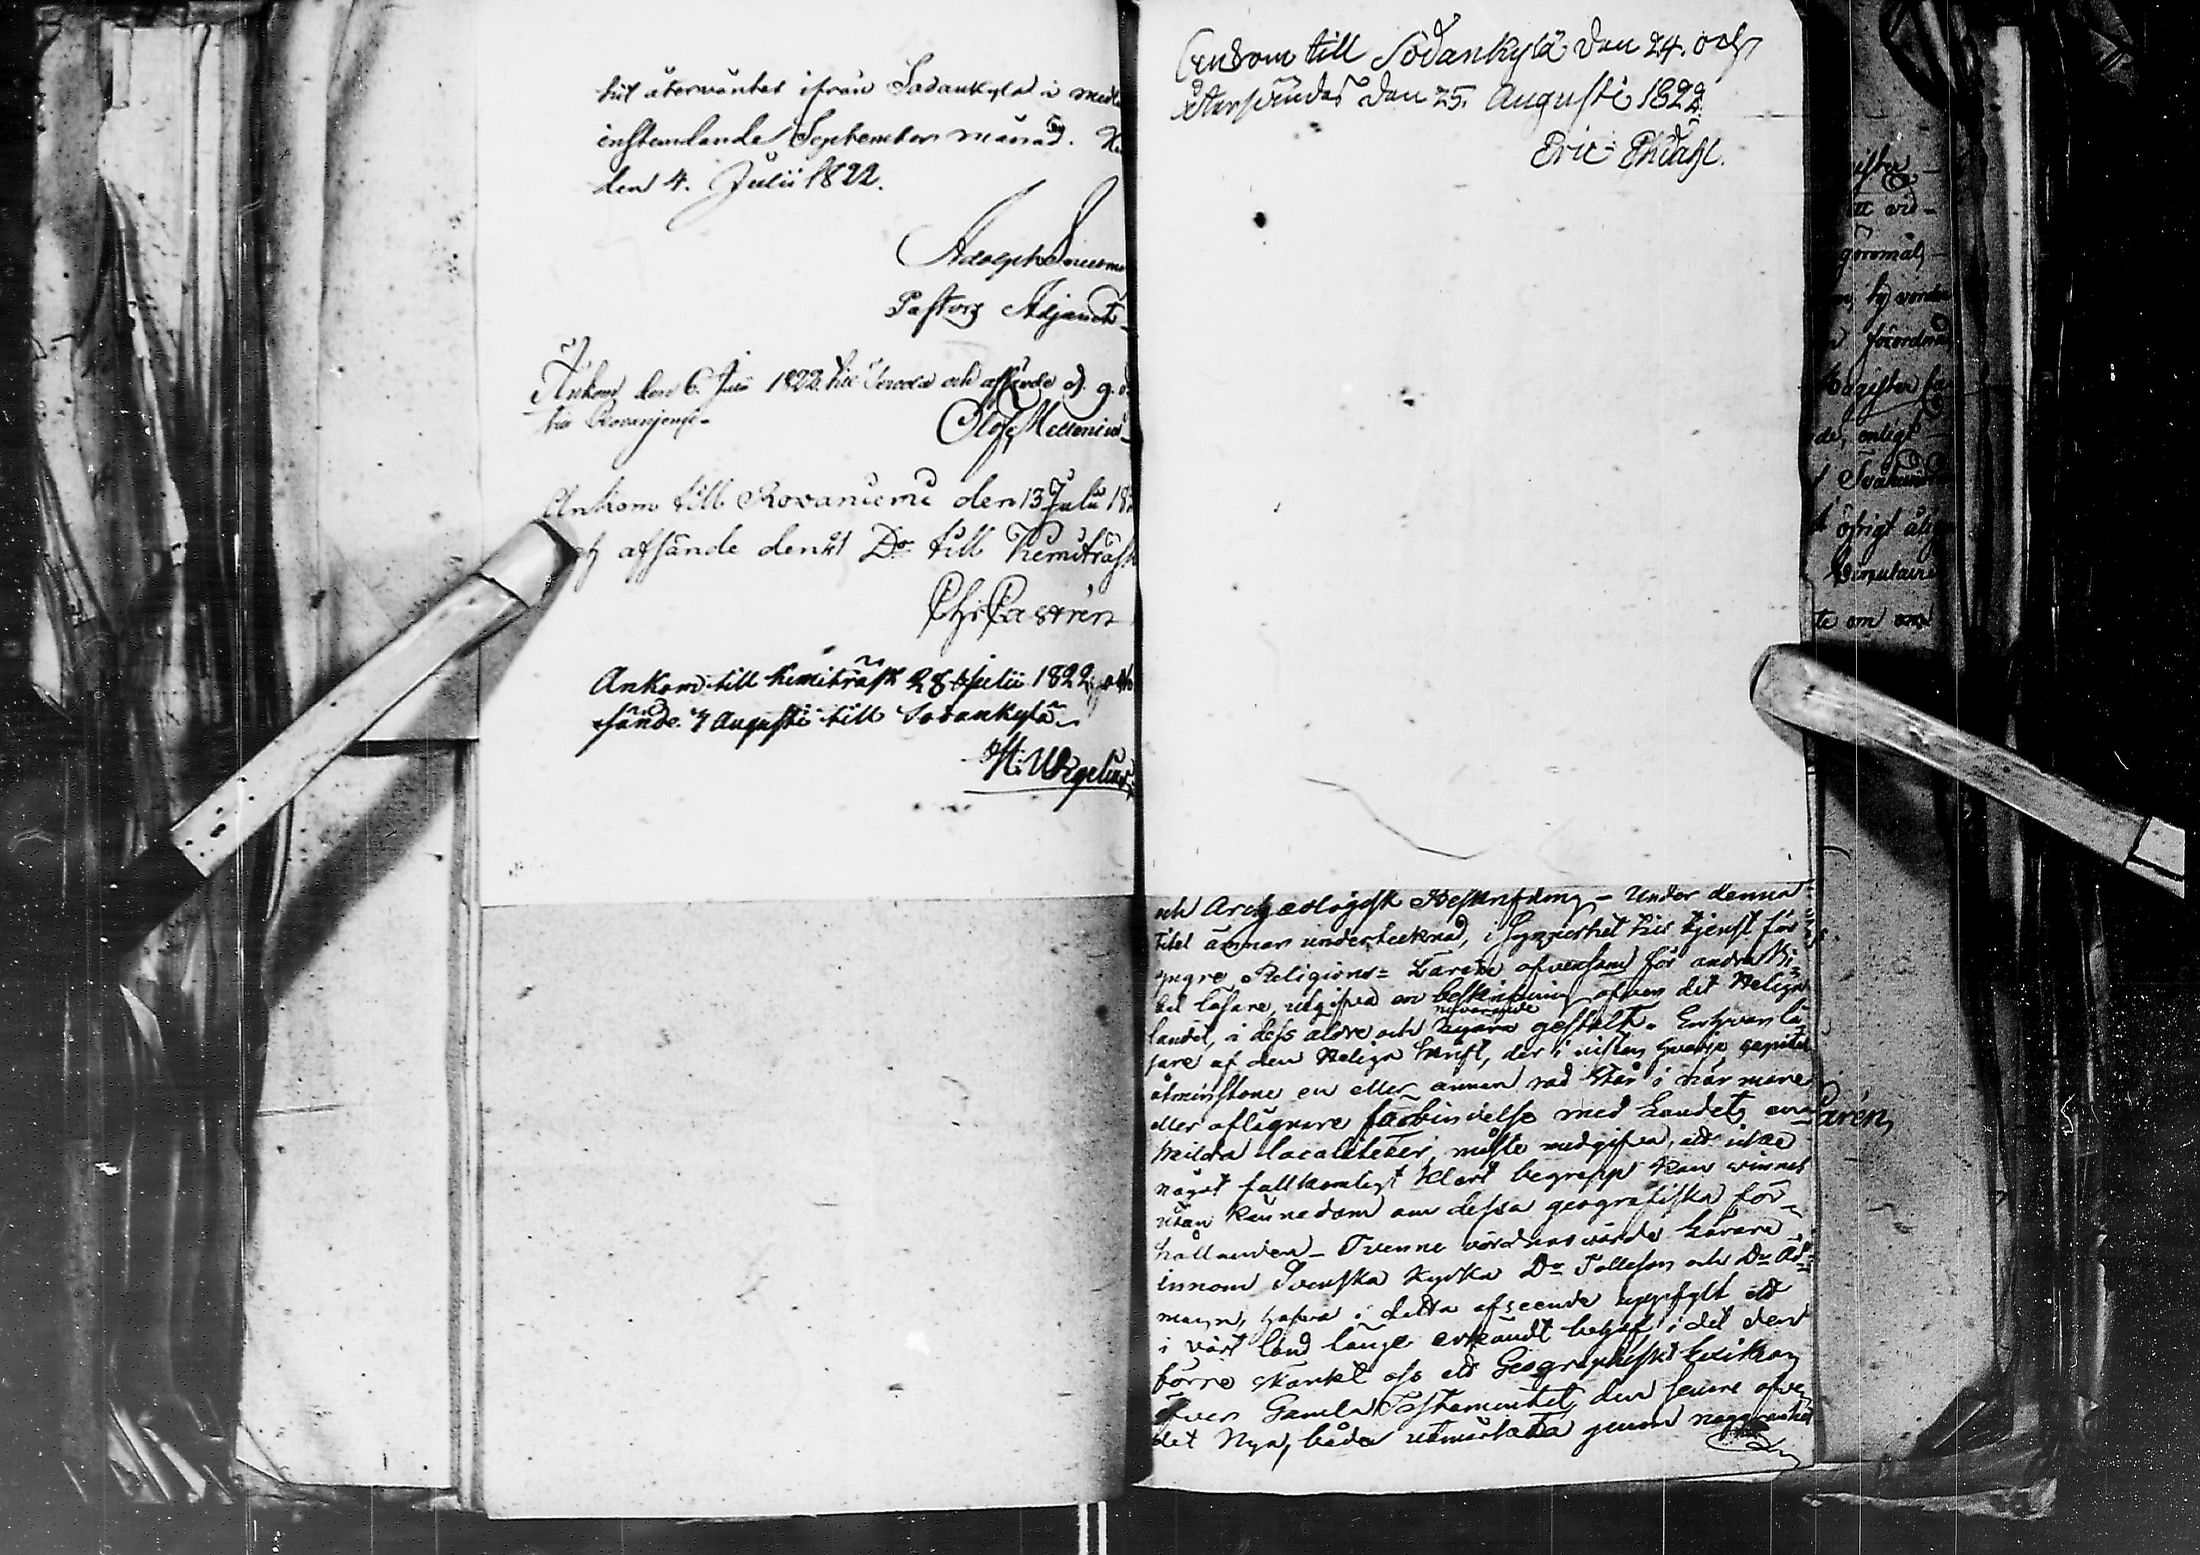 hit återväntas ifrån Sodankylä i medl
instundande September månad.
den 4. Julii 1822.
Adolph
Pastors Adjunct
Ankom den 6. Julii 1822 till Tervola och afsände d. 9. d.
till Rovaniemi
Olof Mellenius
Ankom till Rovaniemi den 13 Julii 18
och afsände den 21 Do till Kemiträsk
Castrén
Ankom till Kemiträsk 28 Julii 1822, och
sände 7 Augusti till Sodankylä
H: Wegelius
Ankom till Sodankylä den 24. och
återsändes den 25. Augusti 1822.
Eric
och Archæologisk Beskrifning – Under denna
titel ämnar undertecknad, i synnerhet till tjenst för
yngre Religions-Lärare äfvensom för andra Bi-
bel läsare, utgifva en beskrifning öfver det Heliga
nuvarande
landet, i dess äldre och nyare gestalt. Enhvar lä-
sare af den Heliga Skrift, der i nästan hvarje capitel
åtminstone en eller annan rad står i närmare
eller aflägsnare förbindelse med Landets en-
skilda localiteter, måste medgifva, att icke
något fullkomligt klart begrepp kan vinnas
utan kännedom om dessa geografiska för-
hållanden – Tvenne vördnadsvärda Lärare
innom Svenska Kyrka Dr Tolleson och Dr Öd-
mann, hafva i detta afseende uppfylt ett
i vårt land länge erkändt behof, i det den
förre skänkt oss ett Geographiskt Lexikon
öfver Gamla Testamentet, den senare öfver
det Nya, båda utmärkta genom noggranhet
arén,
ister
att vid-
göromål,
förordnad
Magister
de, enligt
öfrigt
te om